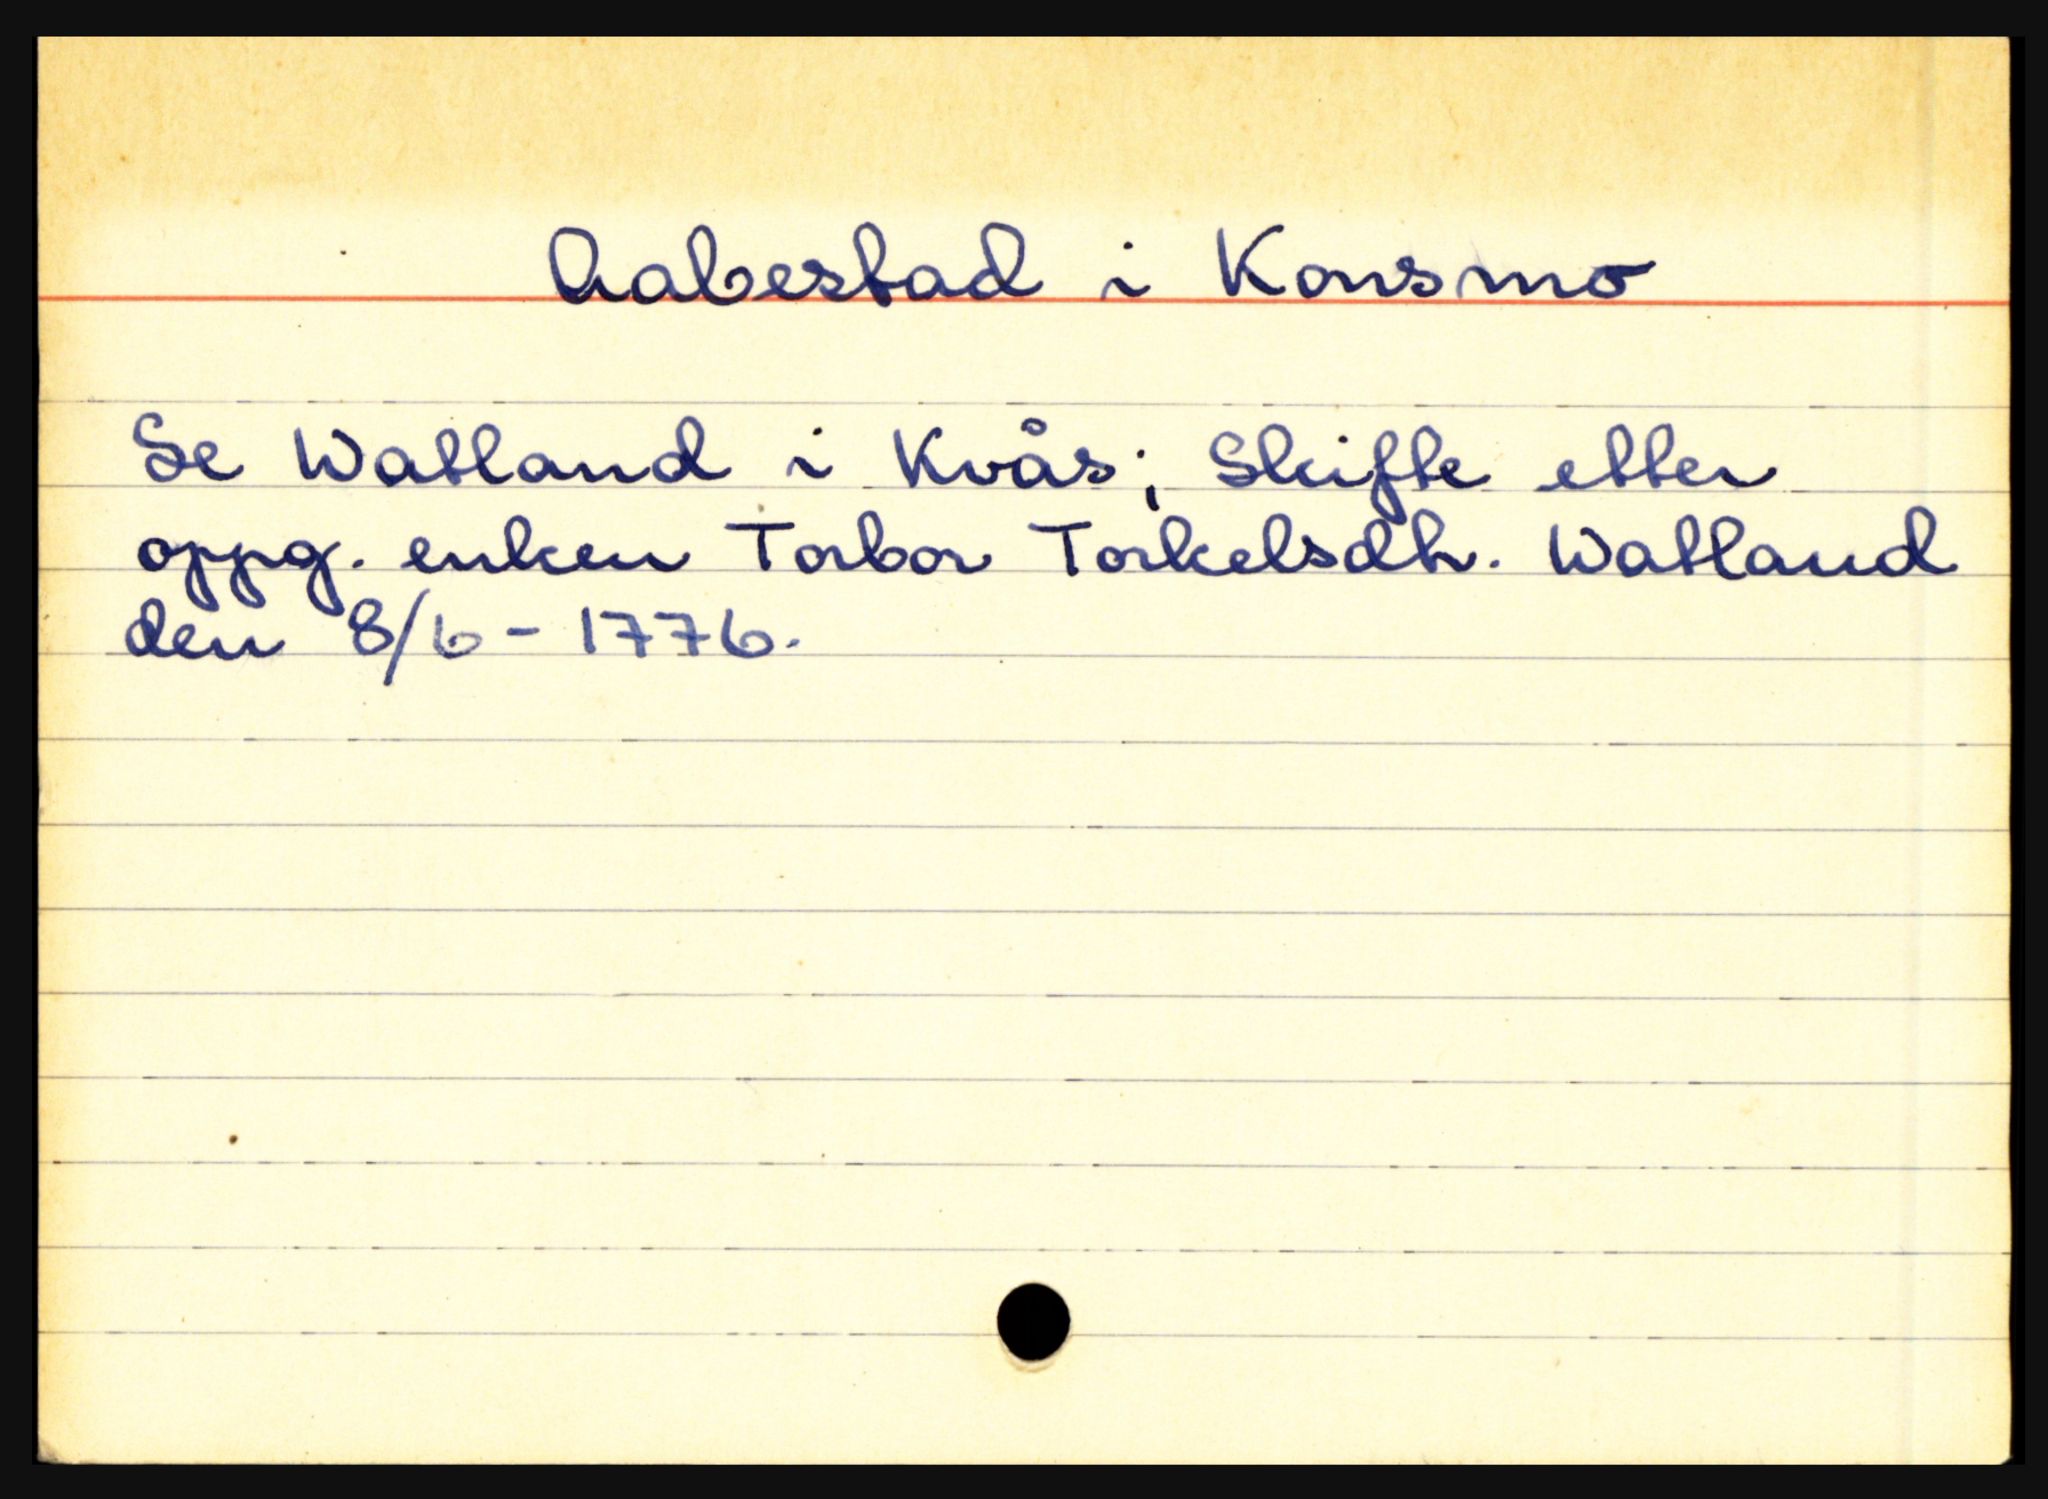 Aabestad i Konsmo
Se Watland i Kvås; Skifte etter
oppg. enken Torbor Torkelsdtr. Watland
den 8/6 - 1776.